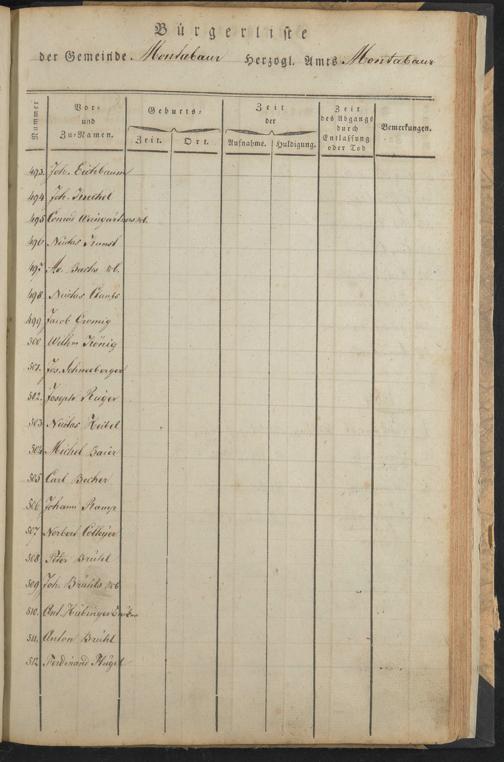 Bürgerliste
der Gemeinde Montabaur Herzogl. Amts Montabaur
Nummer
Vor- und Zu-Namen.
Geburts-
Zeit. Ort.
Zeit der
Aufnahme. Huldigung.
Zeit des Abgangs durch Entlassung oder Tod
Bemerkungen.
493. Joh. Eichbaum
494 Joh.
495 Conrad Wb.
496 Niclas
497 Bachs Wb.
498. Niclas
499 Jacob Gromig
500 Wilhm König
501. Jos. Schneeberger
502. Joseph
503 Niclas
504 Michel Baier
505 Carl Becher
506 Johann
507 Norbert
508. Peter Brühl
509 Joh. Brühls Wb
510. Ant. Hübinger
511. Anton Brühl
512 Ferdinand Flügel